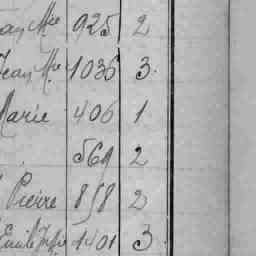 an Mie 925 2
Jean Mie 1036 3
Marie 406 1
569 2
Pierre 858 2
Emile 1401 3